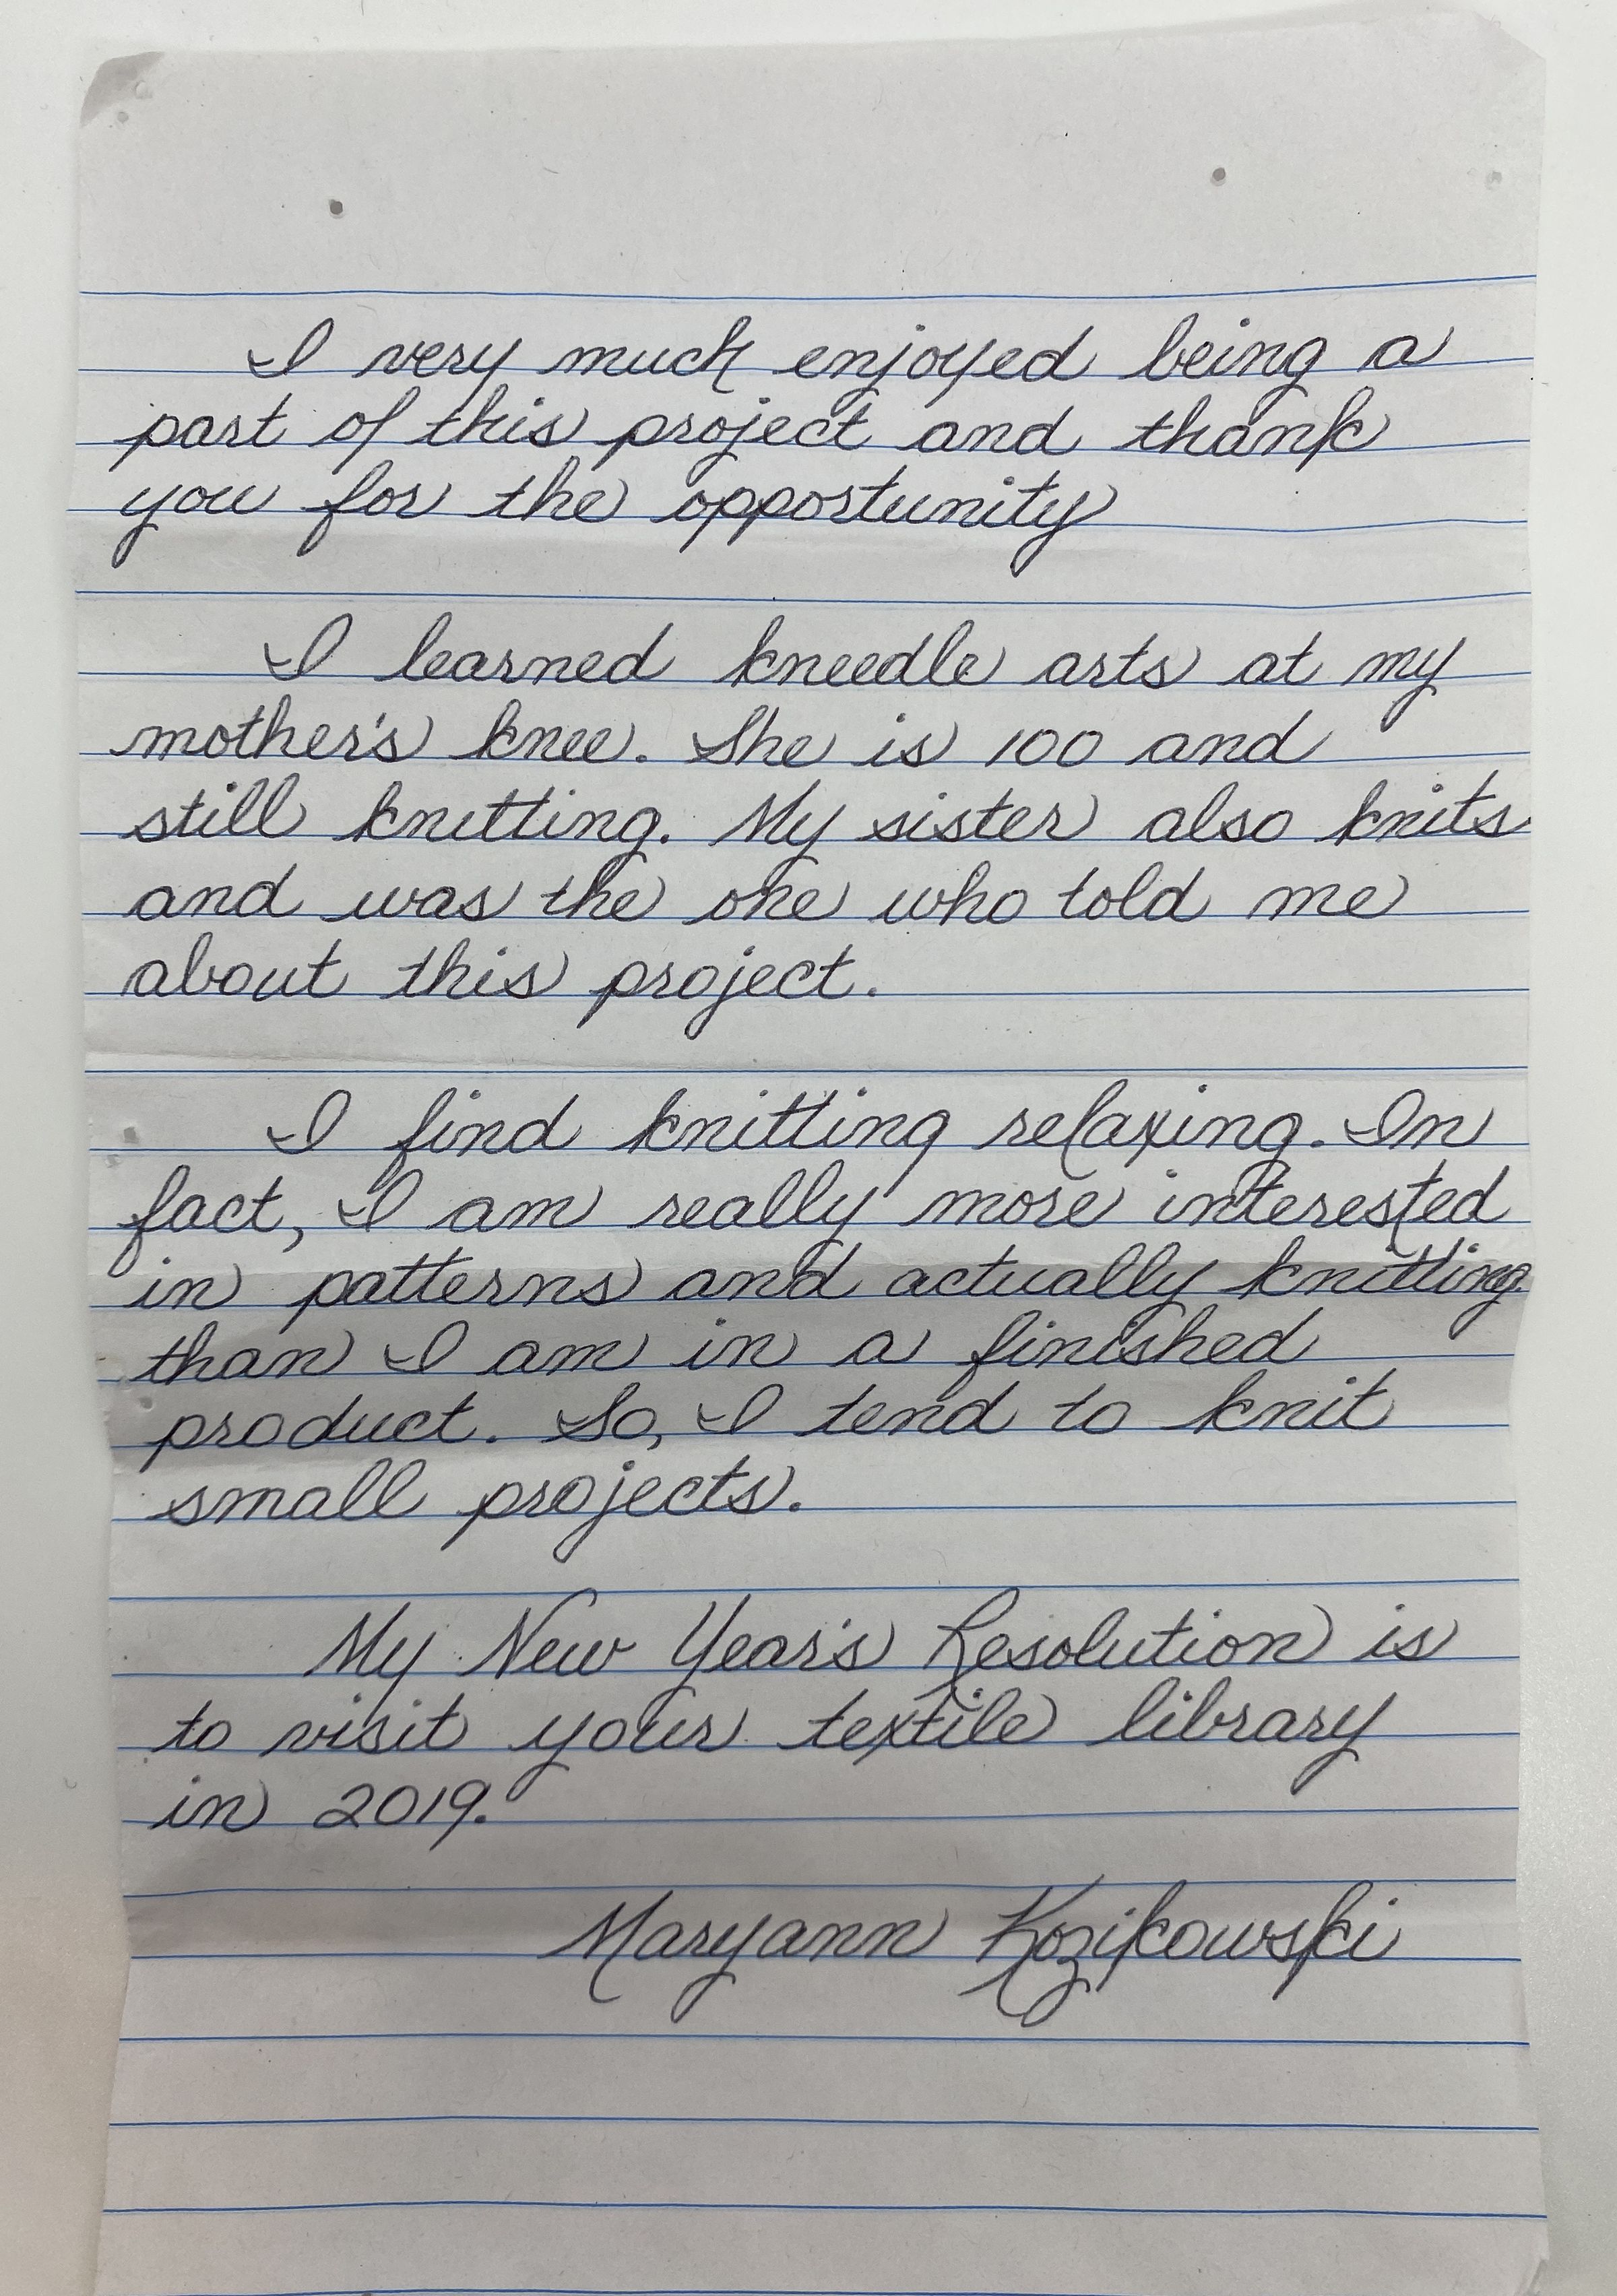 I very much enjoyed being a
part of this project and thank
you for the opportunity
I learned kneedle arts at my
mother's knee. She is 100 and
still knitting. My sister also knits
and was the one who told me
about this project.
I find knitting relaxing. In
fact, I am really more interested
in patterns and actually knitting
than I am in a finished
product. So, I tend to knit
small projects.
My New Year's Resolution is
to visit your textile library
in 2019.
Maryann Kozikowski